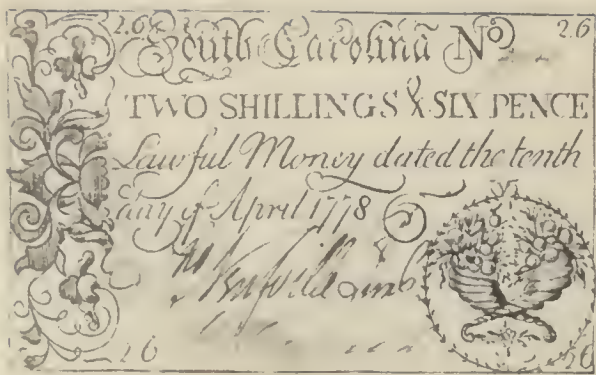 26 South Carolina Nº 26
TWO SHILLINGS & SIX PENCE
Lawful Money dated the tenth
day of April 1778
26 26